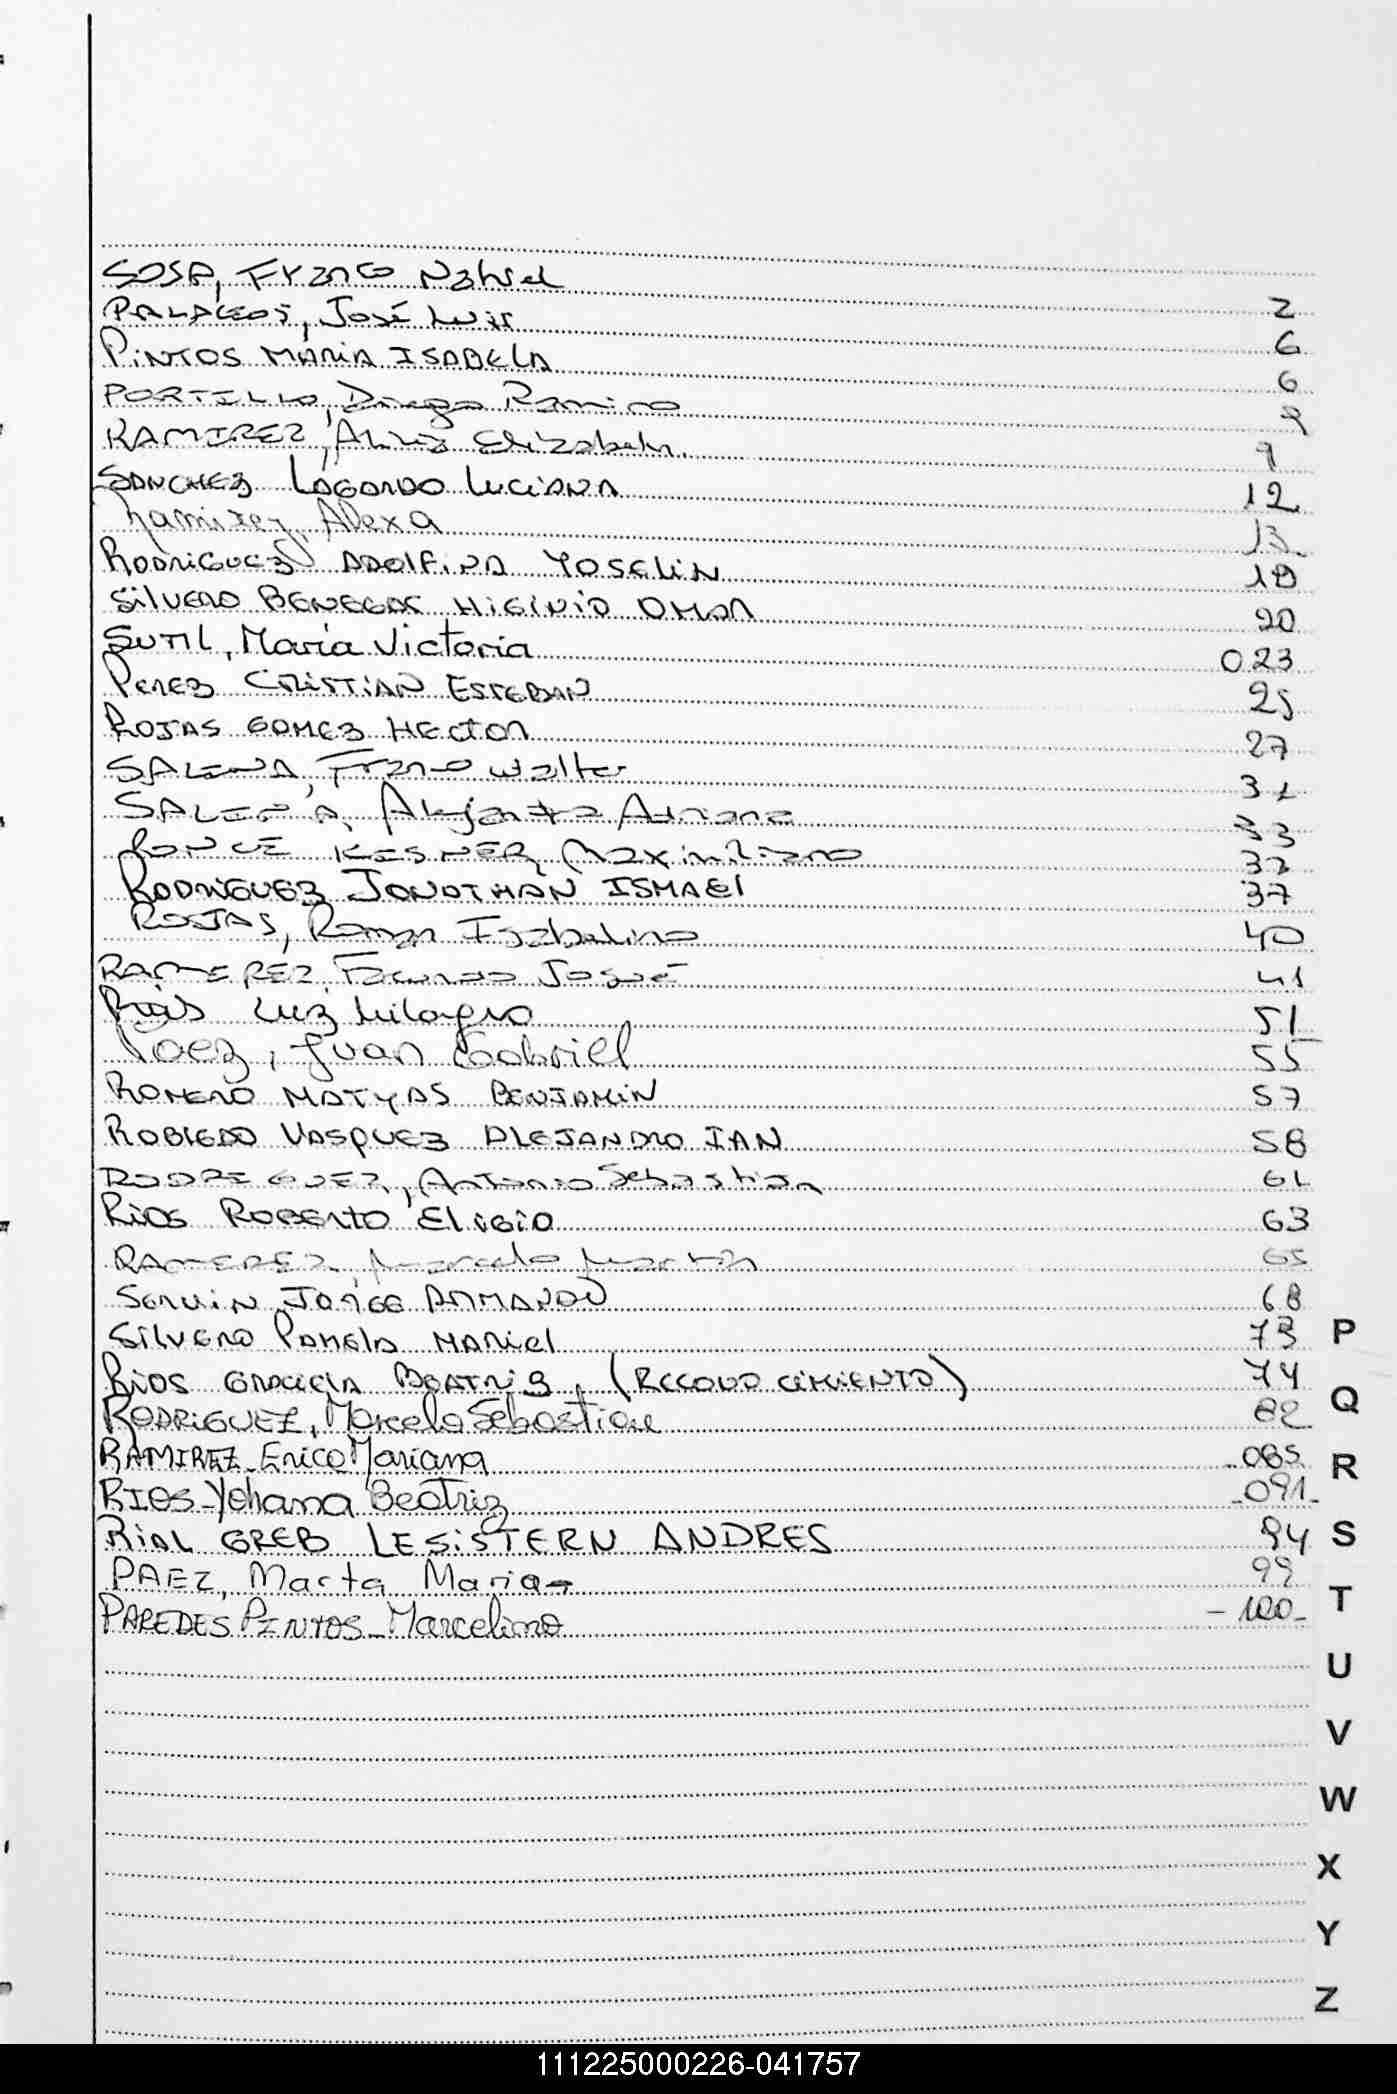 SOSA, Franco Nahuel 2
PALACIOS, José Luis 6
PINTOS MARIA ISABELA 6
PORTILLO, Diego Ramiro 9
RAMIREZ, Elizabeth 9
SANCHEZ LAGARDO LUCIANA 12
Ramirez, Alexa 13
RODRIGUEZ ADOLFINA YOSELIN 19
SILVERO BENEGAS HIGINIO OMAR 20
SUTIL, María Victoria 023
PEREZ CRISTIAN ESTEBAN 25
ROJAS GOMEZ HECTOR 27
Walter 31
Adriana 33
PONCE KESNER, Maximiliano 37
RODRIGUEZ JONATHAN ISMAEL 37
ROJAS, Ramon Isabelino 40
RAMIREZ, Facundo Josué 41
Luz Milagro 51
Paez, Juan Gabriel 55
ROMERO MATYAS BENJAMIN 57
ROBLEDO VASQUEZ ALEJANDRO IAN 58
RODRIGUEZ, Antonio Sebastian 61
RIOS ROBERTO ELIGIO 63
RAMIREZ, Marcelo Martin 65
SERVIN JORGE ARMANDO 68
SILVERO PAMELA MARIEL 73
RIOS GRACIELA BEATRIS, (RECONOCIMIENTO) 74
RODRIGUEZ, Marcelo Sebastian 82
P
Q
RAMIREZ Erico Mariana 085
R
RIOS - Yohana Beatriz -091-
RIAL GREB LESISTERN ANDRES 94
S
PAEZ, Marta Maria 99
PAREDES PINTOS - Marcelino -100-
T
U
V
W
X
Y
Z
111225000226-041757